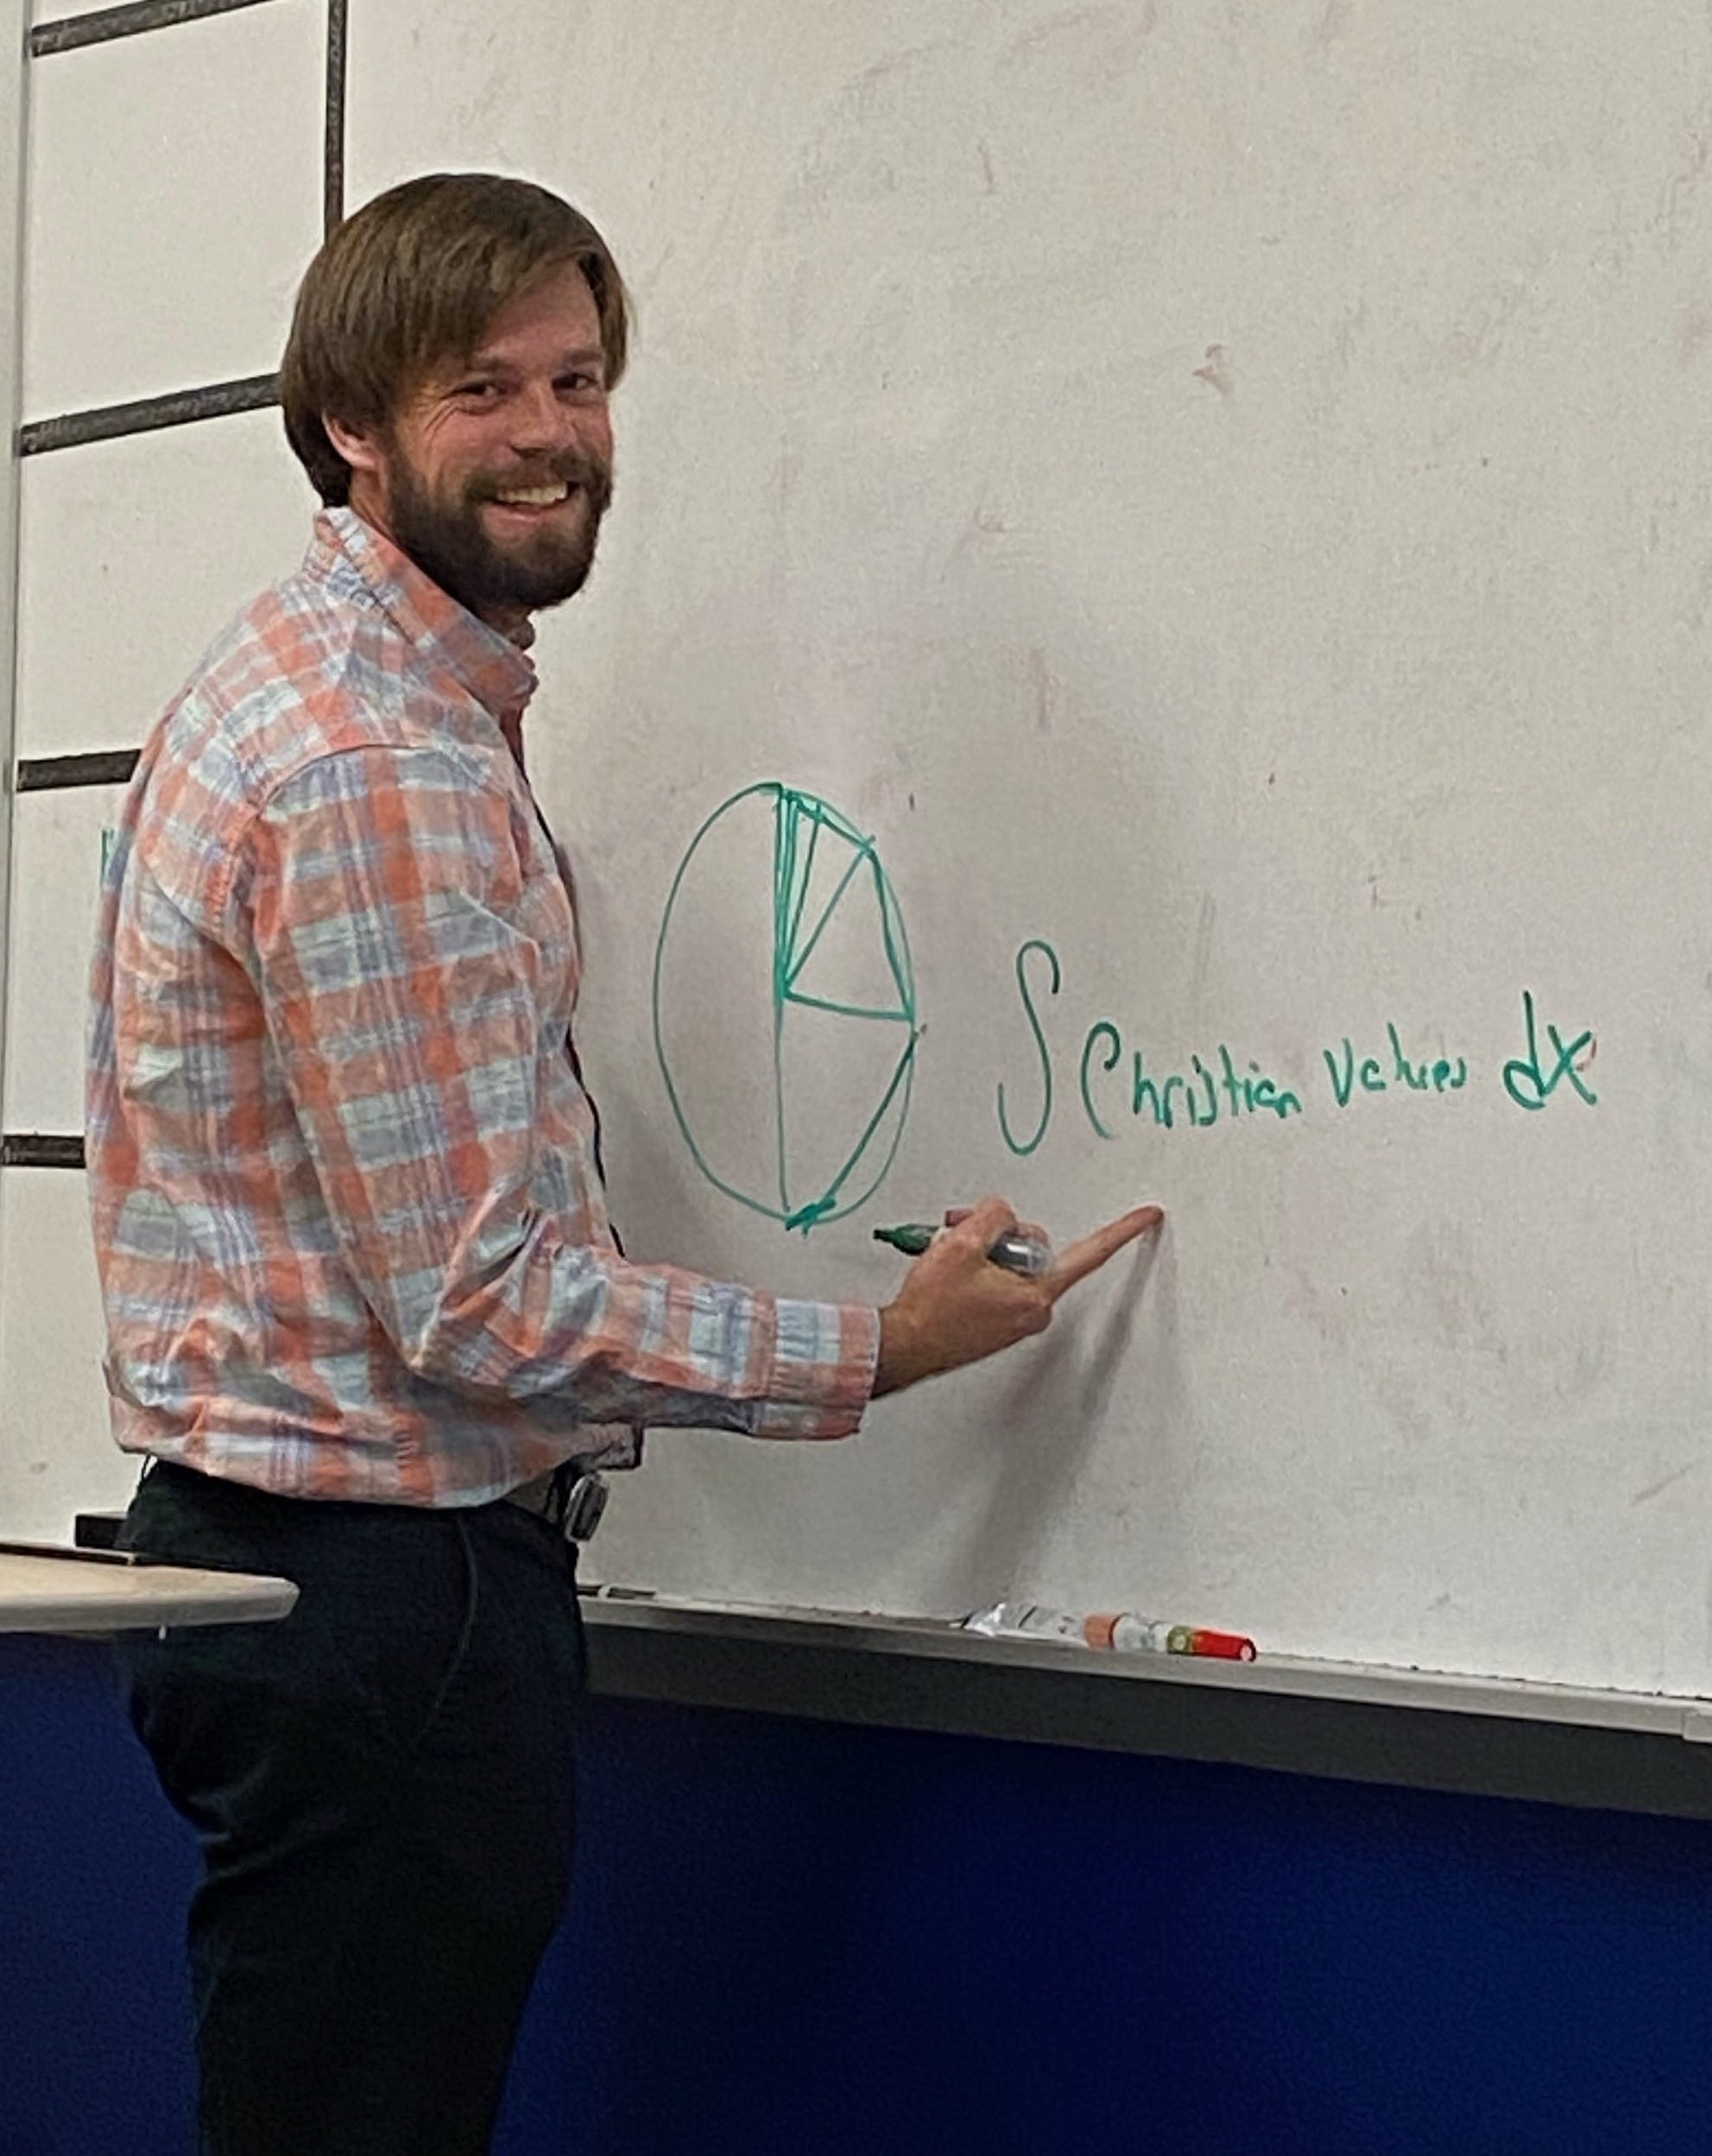 ∫ Christian Values dx